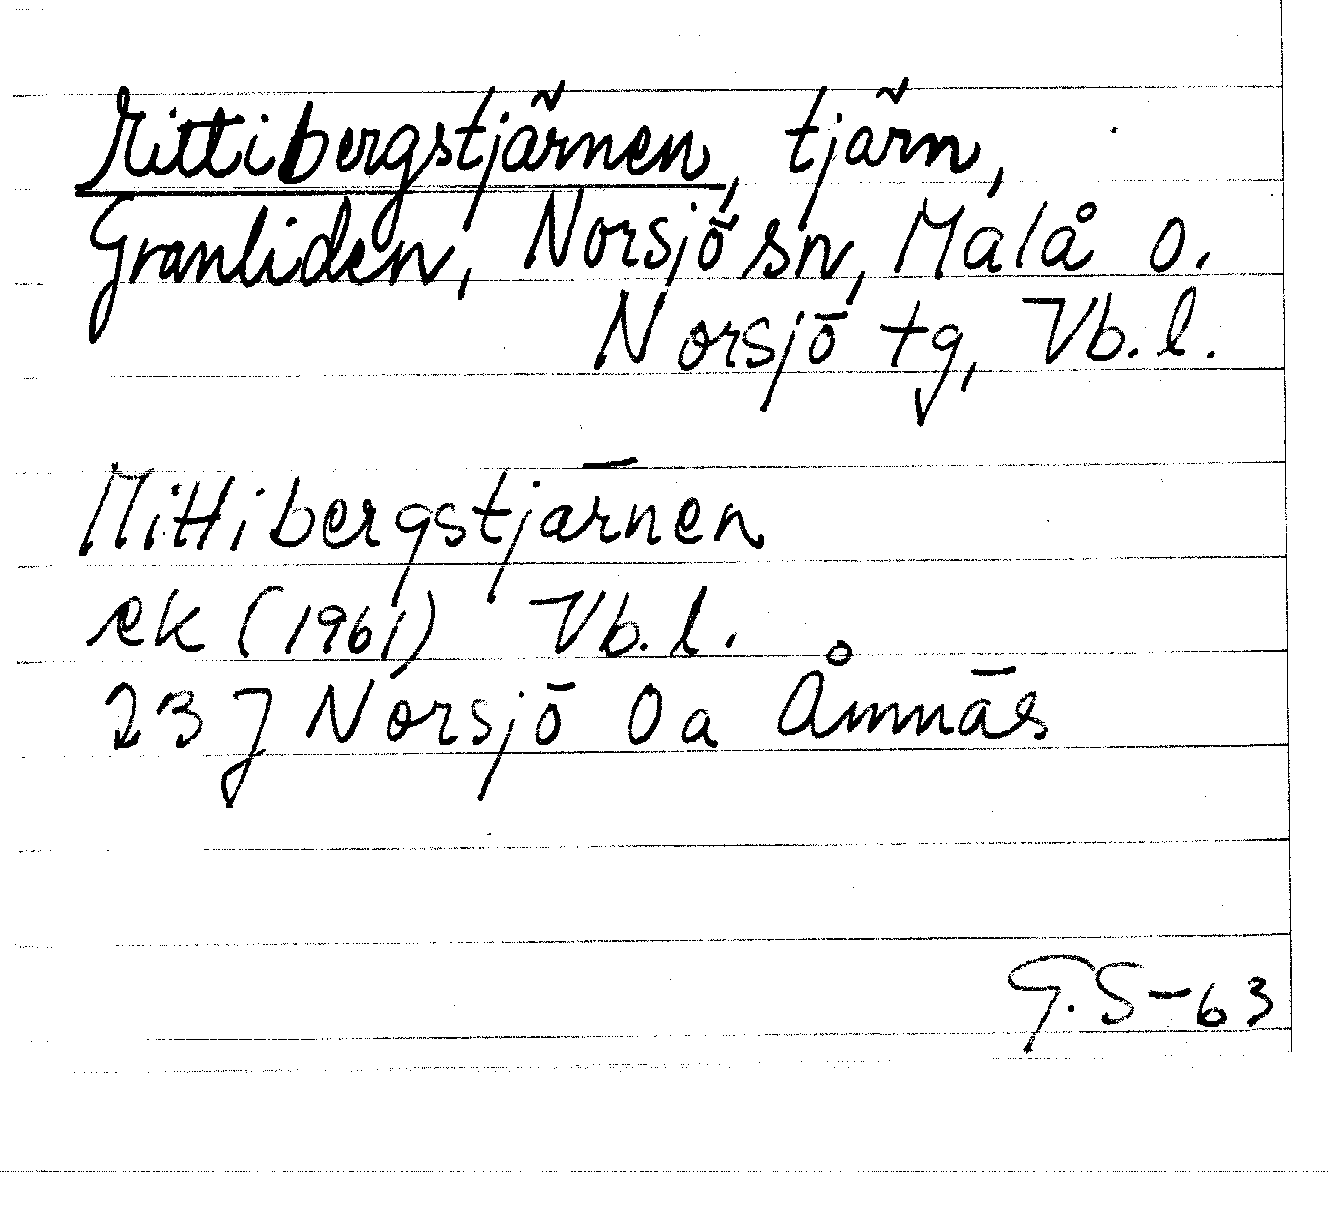 Mittibergstjärnen, tjärn,
Granliden, Norsjö sn, Malå o.
Norsjö tg, Vb. l.
Mittibergstjärnen
ek (1961) Vb. l.
23 J Norsjö 0a Åmnäs
G. S-63